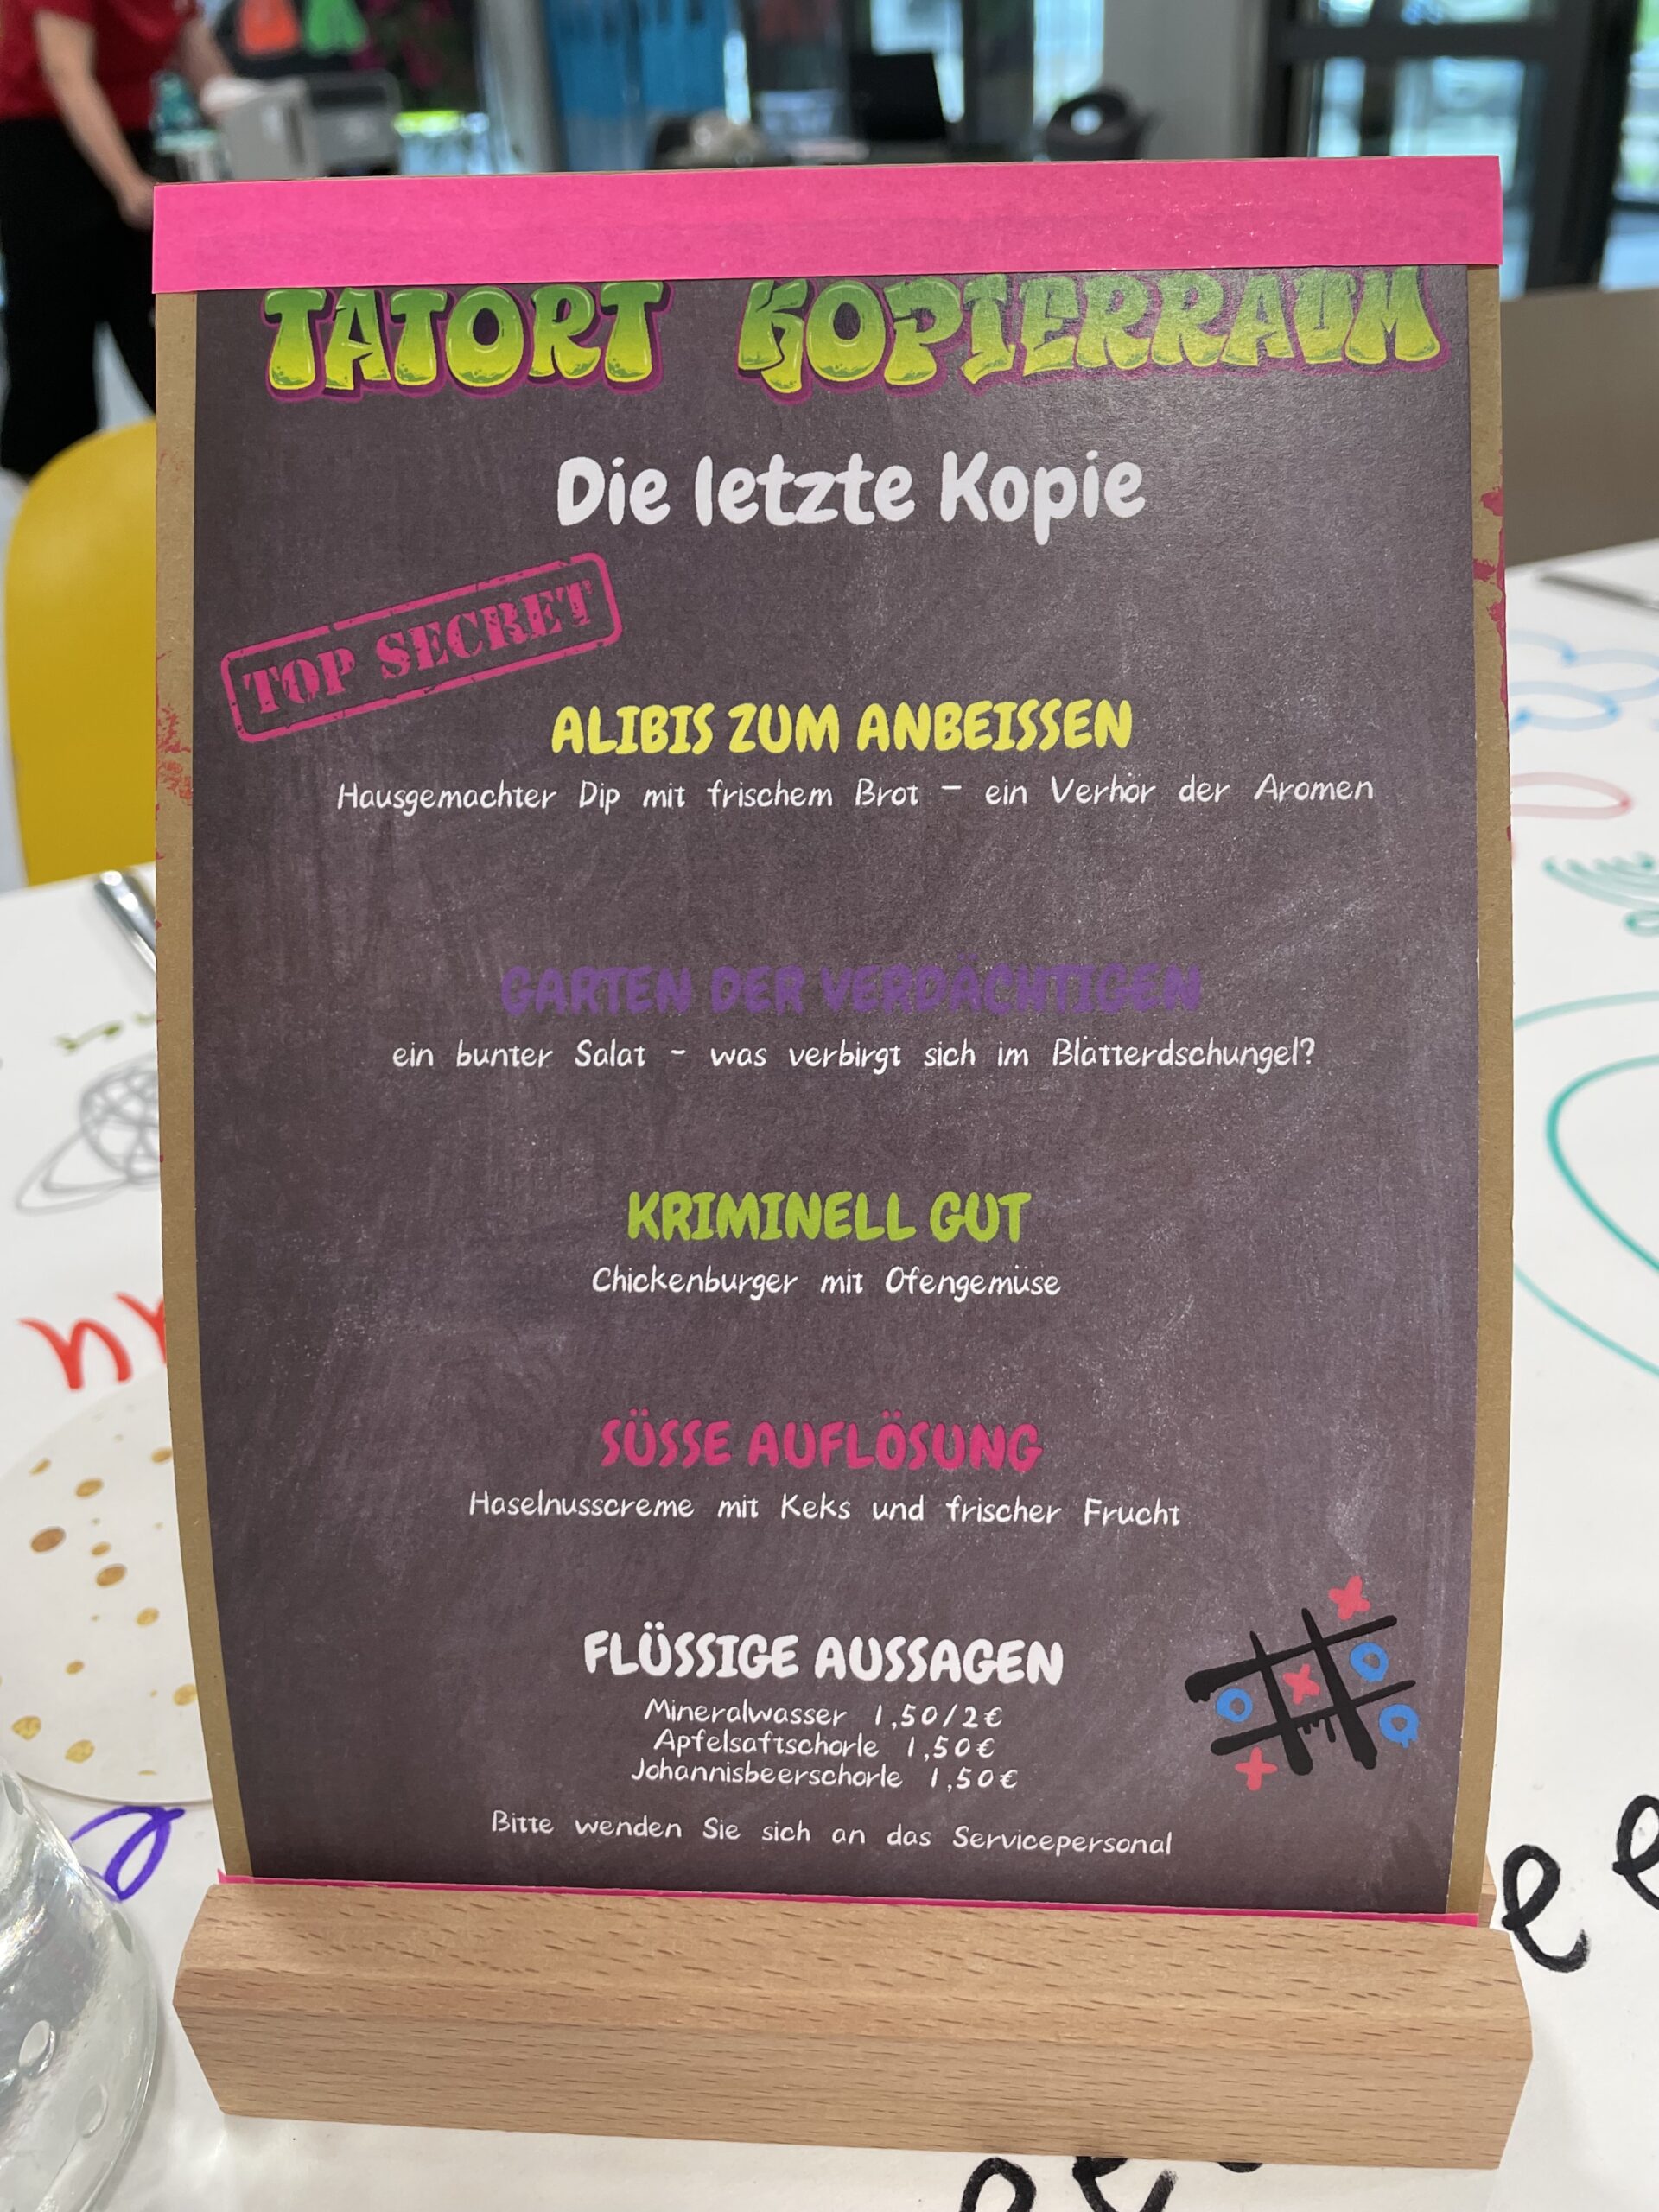 TATORT KOPIERRAUM
Die letzte Kopie
TOP SECRET
ALIBIS ZUM ANBEISSEN
Hausgemachter Dip mit frischem Brot – ein Verhör der Aromen
GARTEN DER VERDÄCHTIGEN
ein bunter Salat - was verbirgt sich im Blätterdschungel?
KRIMINELL GUT
Chickenburger mit Ofengemüse
SÜSSE AUFLÖSUNG
Haselnusscreme mit Keks und frischer Frucht
FLÜSSIGE AUSSAGEN
Mineralwasser 1,50/2€
Apfelsaftschorle 1,50€
Johannisbeerschorle 1,50€
Bitte wenden Sie sich an das Servicepersonal